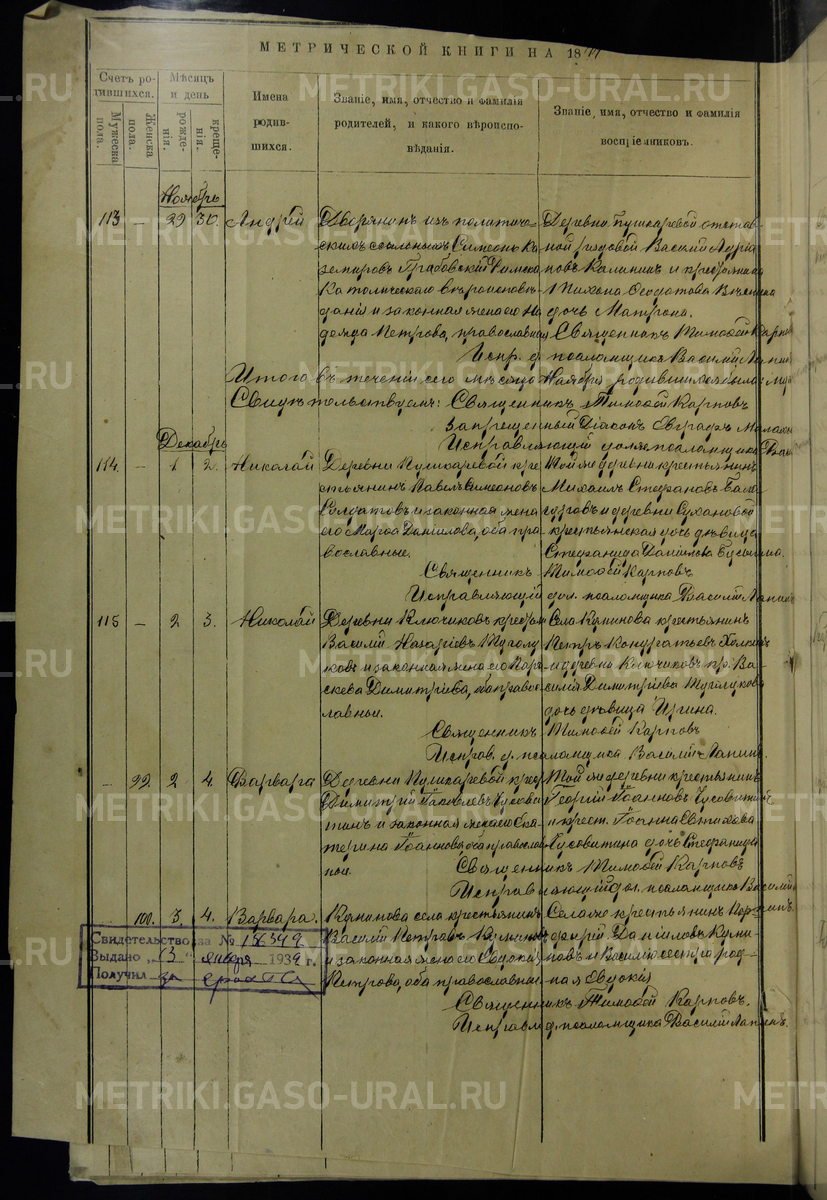 МЕТРИЧЕСКОЙ КНИГИ НА 18
Счетъ ро-
дившихся.
Мужеска
пола.
Женска
пола.
Мѣсяцъ
и день
рожде-
нія.
креще-
нія.
Имена
родив-
шихся.
Званіе, имя, отчество и фамилія
родителей, и какого вѣроиспо-
вѣданія.
Званіе, имя, отчество и фамилія
воспріемниковъ.
Ноябрь
113 — 29 30. Андрей
Дворянинъ изъ политиче-
скихъ ссыльныхъ Симеонъ Ка
земировъ Грабовскій Римско
Католическаго вѣроисповѣ-
данія и законная жена его На
дежда Петрова, православная
Деревни Пушкаревой отстав
ной рядовой Василій
Калининъ и
Тихона Ѳеодотова
дочь Матрона.
Священникъ Тимоѳей Карпов
Испр. д. псаломщика Василій Лапин
Итого въ теченіи сего мѣсяца Ноября родившихся было: му
Свидѣтельствуемъ: Священникъ Тимоѳей Карповъ
Запрещенный Діаконъ
Исправляющій должн псаломщика Васи
Декабрь
114. — 1 2. Николай
Деревни Пушкаревой кре
стьянинъ Павелъ Симеоновъ
Солдатовъ и законная жена
его Марѳа Даніилова, оба пра
вославные.
Той же деревни крестьянинъ
Михаилъ Стефановъ
и деревни Сухановой
крестьянская дочь дѣвица
Стефанида Даніилова
Священникъ Тимоѳей Карповъ
Исправляющій дол. псаломщика Василій Лапин
115 — 2 3. Николай
Деревни Ключиковъ крестьян
Василій Назаріевъ
ковъ и законная жена его Пара
скева Димитріева, оба правос
лавные.
Села Криинова крестьянинъ
Петръ Кондратьевъ
и деревни Ключиковъ кр. Ва-
силія Димитріева
дочь дѣвица Ирина.
Священникъ Тимоѳей Карповъ
Исправ. д. псаломщика Василій Лапинъ.
— 99. 2 4. Варвара
Деревни Пушкаревой крес
Димитрій Іаковлевъ Чусови
тинъ и законная жена его Ека
терина Іоаннова, оба правосла
ные.
Той же деревни крестьянинъ
Георгій Іоанновъ Чусовитин
и крест. Іоанна
Чусовитина дочь Стефанида
Священникъ Тимоѳей Карповъ
Исправляющій дол. псаломщика Василій
100. 3 4. Варвара.
села крестьянинъ
Василій Петровъ
и законная жена его Евдокія
Петрова, оба православные
Села же крестьянинъ
Даніиловъ
новъ и Василія сестра род-
ная Евдокія
Священникъ Тимоѳей Карповъ.
Исправл. д. псаломщика Василій Лапинъ.
Свидетельство за № 18349
Выдано „13" января 1939 г.
Получил
METRIKI.GASO-URAL.RU